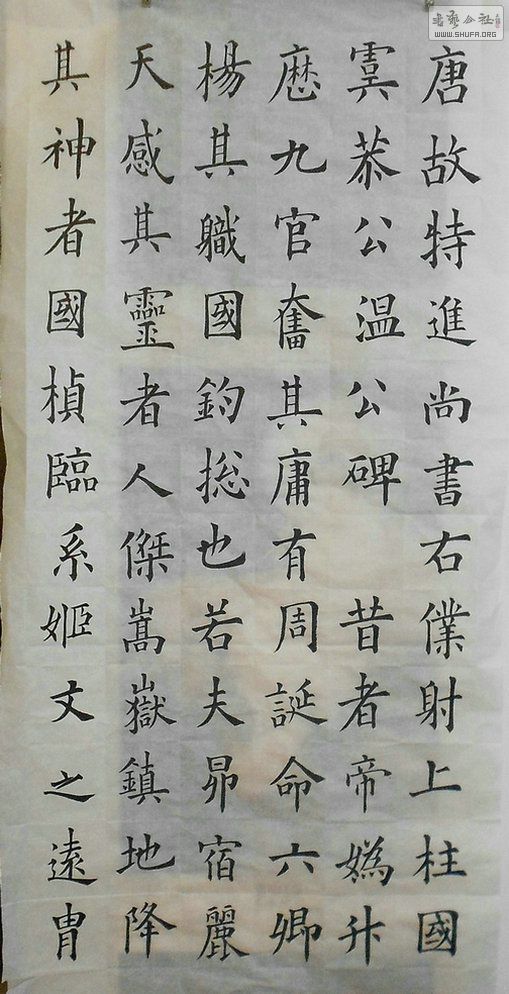 唐故特進尚書右僕射上柱國
虞恭公温公碑 昔者帝媯升
歷九官奮其庸有周誕命六卿
楊其職國鈞揔也若夫昴宿麗
天感其靈者人傑嵩嶽鎮地降
其神者國楨臨系姬文之遠胄
書藝公社
WWW.SHUFA.ORG